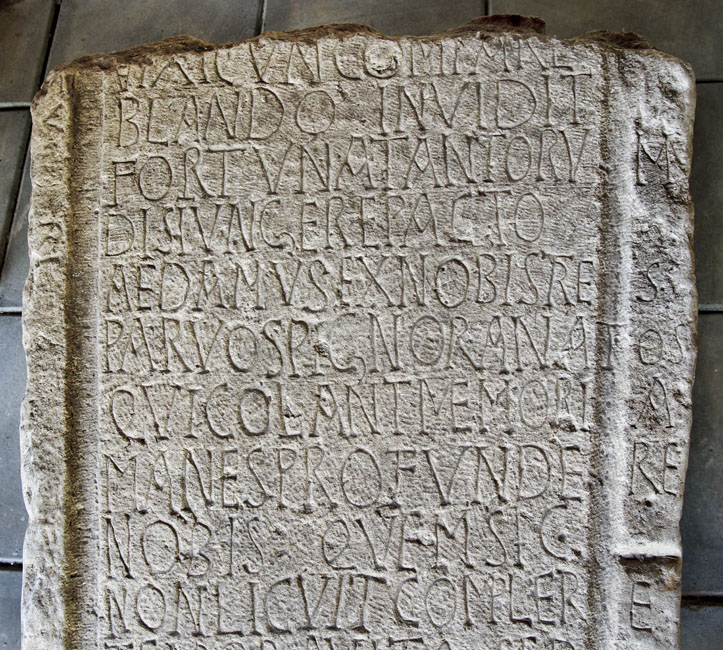 VIXICVNCOMPARE
BLANDO INVIDIT
FORTVNATANTORVM
DISIVNGEREPACTO
AEDAMVSEXNOBISRES
PARVOSPIGNORANATOS
QVICOLANTMEMORIA
MANESPROFVNDERE
NOBIS QVEMSIC
NONLICVITCOMPLERE